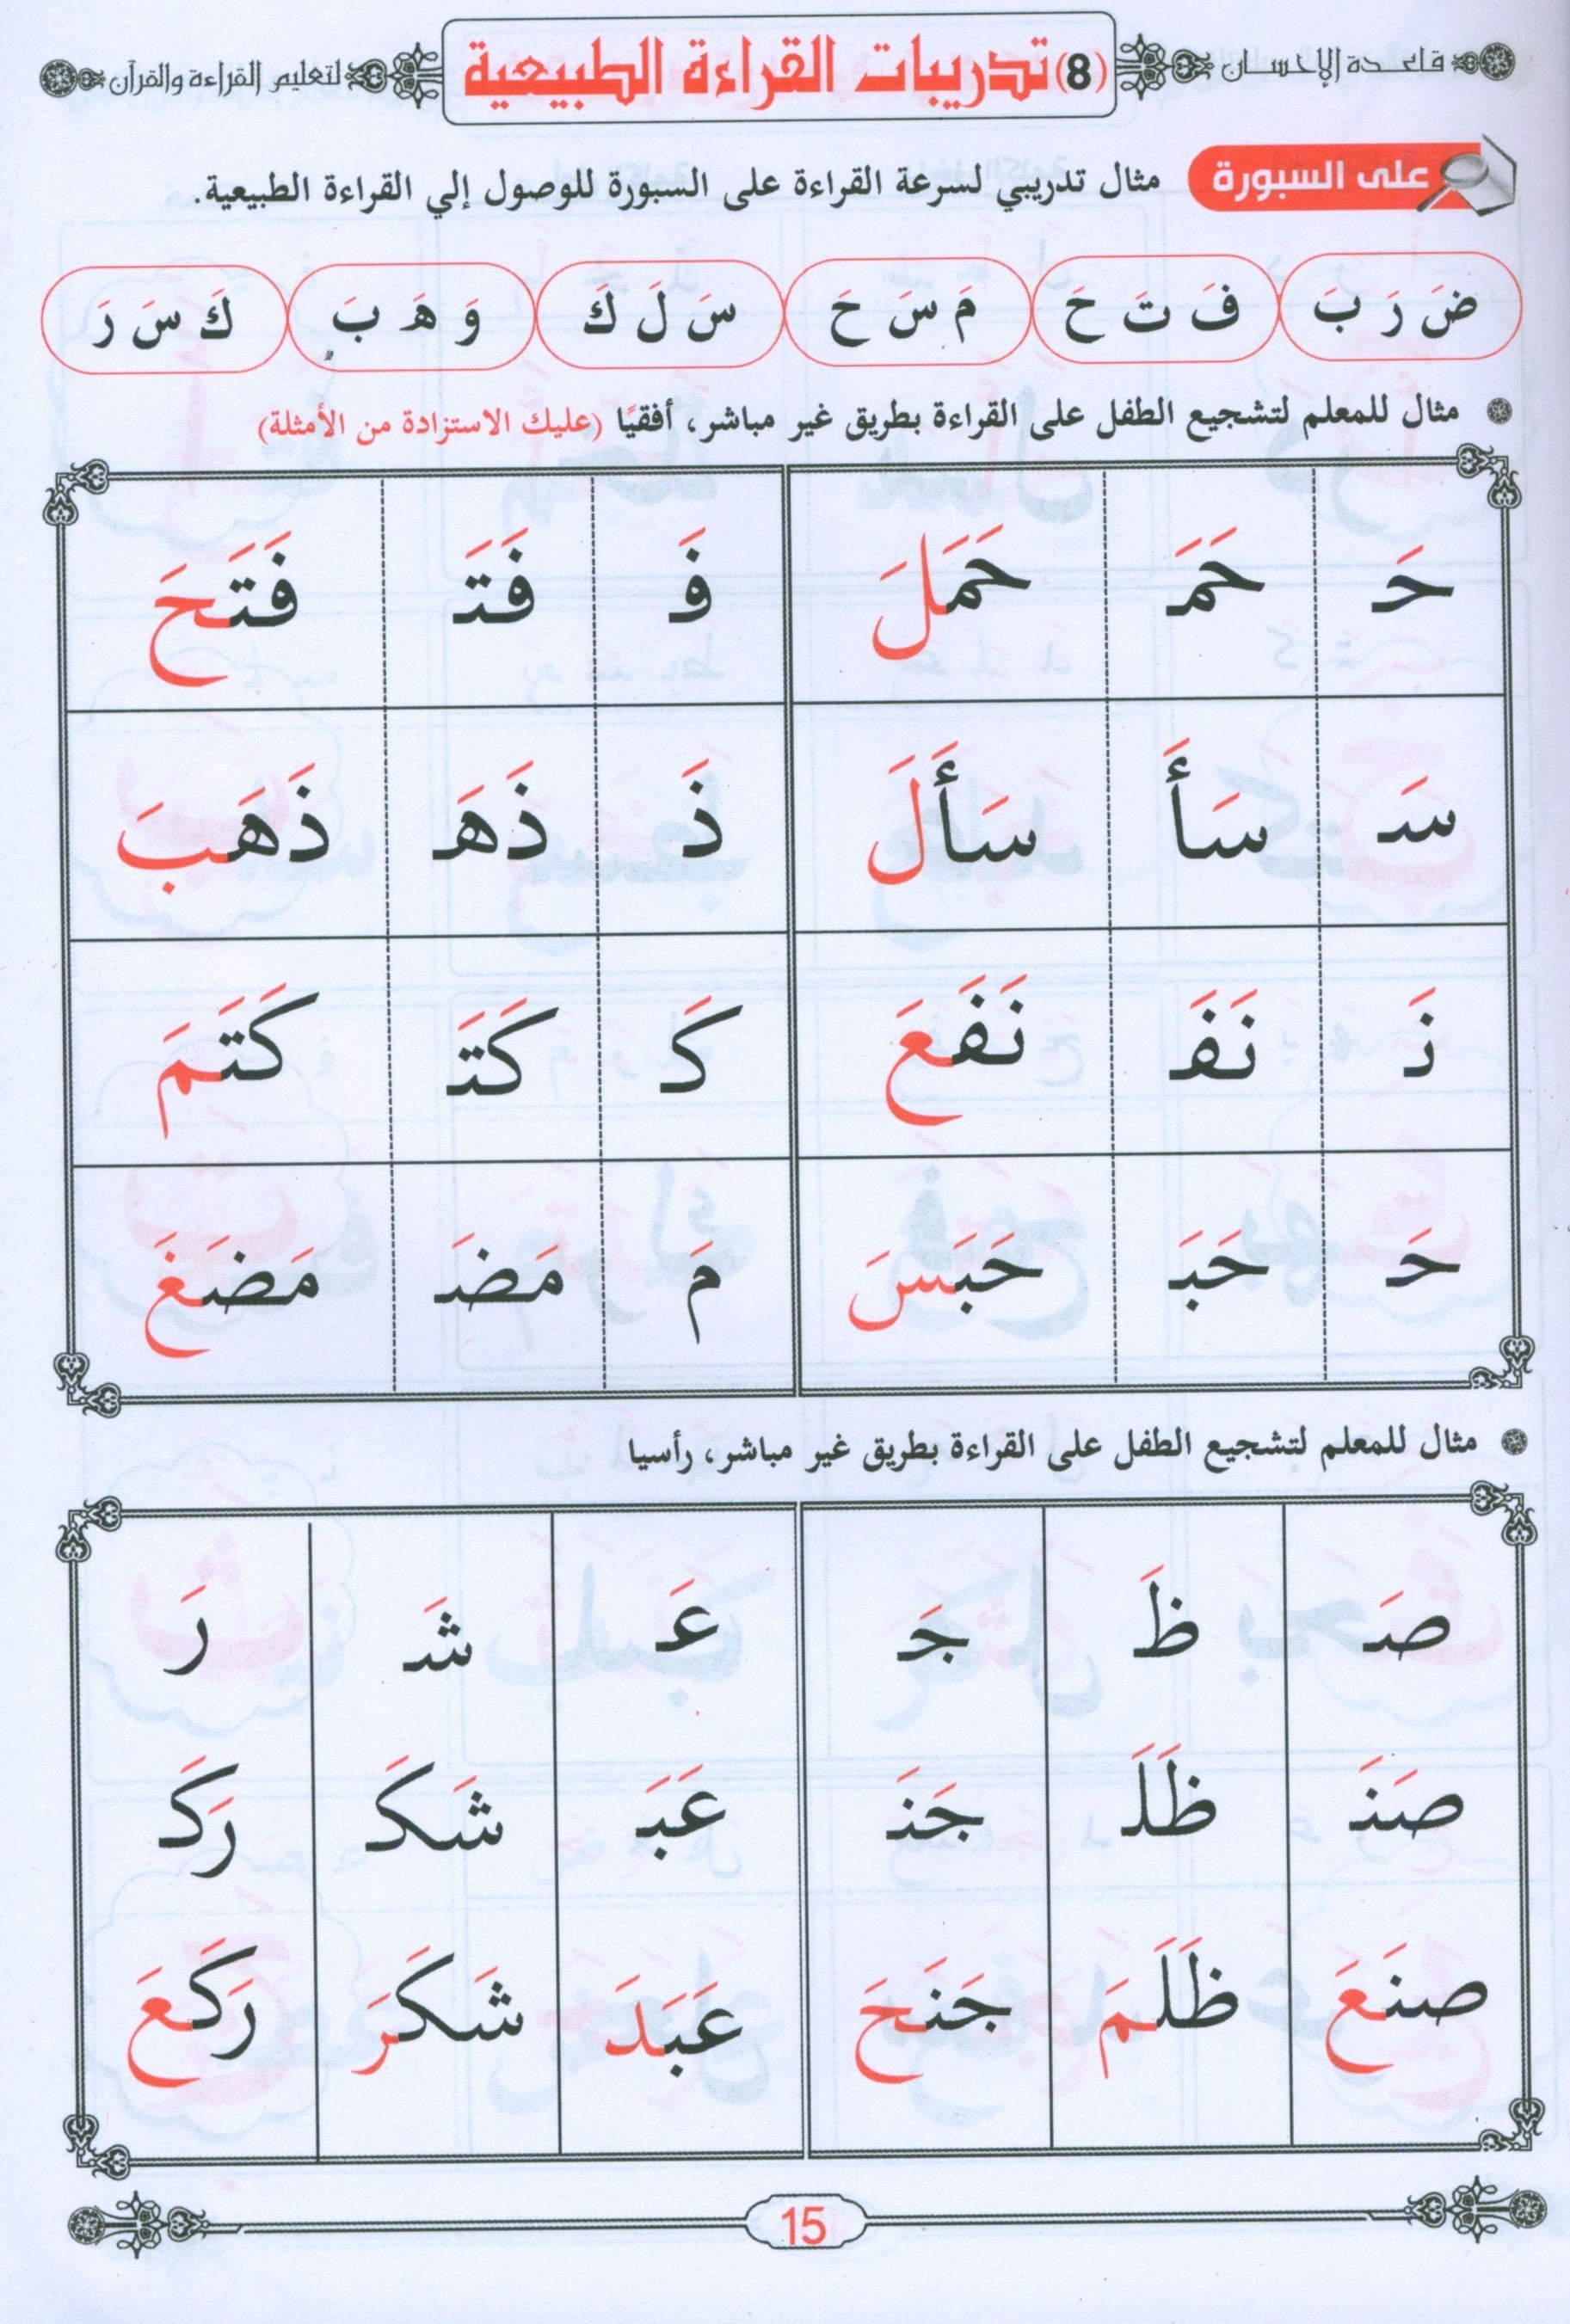 قاعدة الإحسان (8) تدريبات القراءة الطبيعية لتعليم القراءة والقرآن
على السبورة مثال تدريبي لسرعة القراءة على السبورة للوصول إلي القراءة الطبيعية.
ضَ رَ بَ فَ تَ حَ مَ سَ حَ سَ لَ كَ وَ هَ بَ كَ سَ رَ
مثال للمعلم لتشجيع الطفل على القراءة بطريق غير مباشر، أفقيًا (عليك الاستزادة من الأمثلة)
حَـ حَمَـ حَمَلَ فَـ فَتَـ فَتَحَ
سَـ سَأَ سَأَلَ ذَ ذَهَـ ذَهَبَ
نَـ نَفَـ نَفَعَ كَـ كَتَـ كَتَمَ
حَـ حَبَـ حَبَسَ مَ مَضَـ مَضَغَ
مثال للمعلم لتشجيع الطفل على القراءة بطريق غير مباشر، رأسيا
صَـ ظَ جَـ عَـ شَـ رَ
صَنَـ ظَلَـ جَنَـ عَبَـ شَكَـ رَكَـ
صنَعَ ظَلَمَ جَنَحَ عَبَدَ شَكَرَ رَكَعَ
15